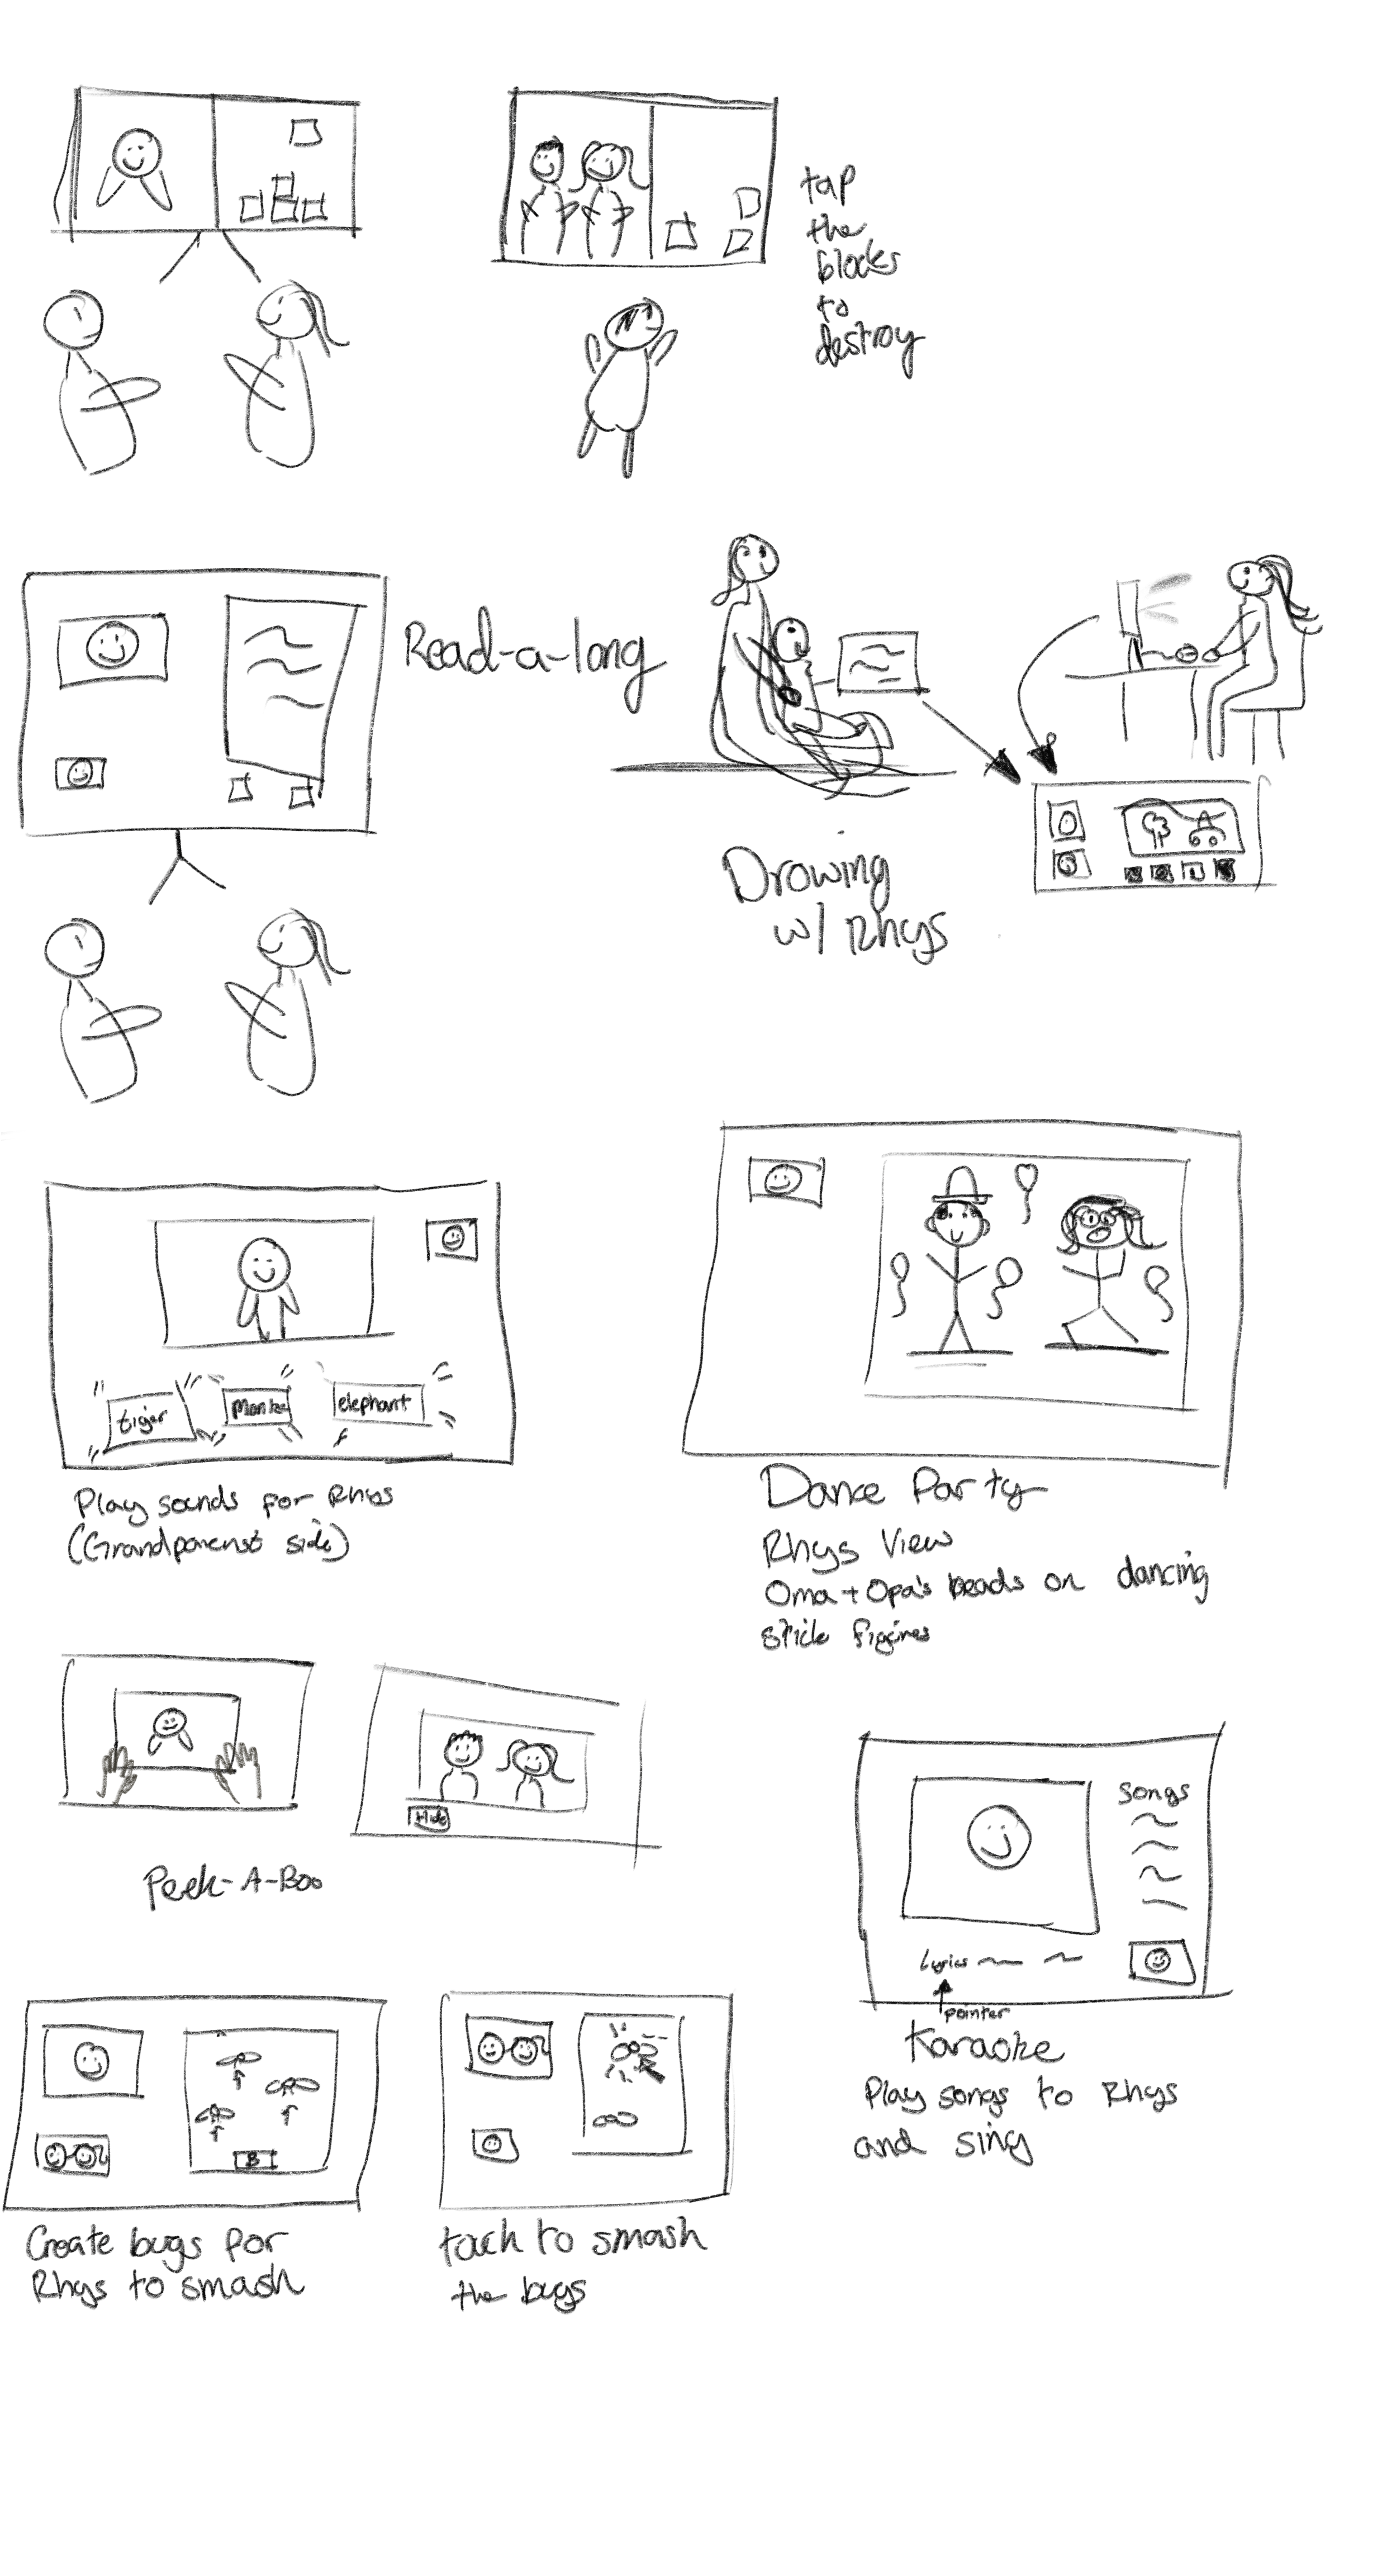 tap
the
blocks
to
destroy
Read-a-long
Drawing
w/ Rhys
tiger
monke
elephant
Play sounds for Rhys
(Grandparenst side)
Dance Party
Rhys View
Oma + Opa's heads on dancing
stick figures
Hide
Peek-A-Boo
Songs
Lyrics
pointer
Karaoke
Play songs to Rhys
and sing
B
Create bugs for
Rhys to smash
touch to smash
the bugs